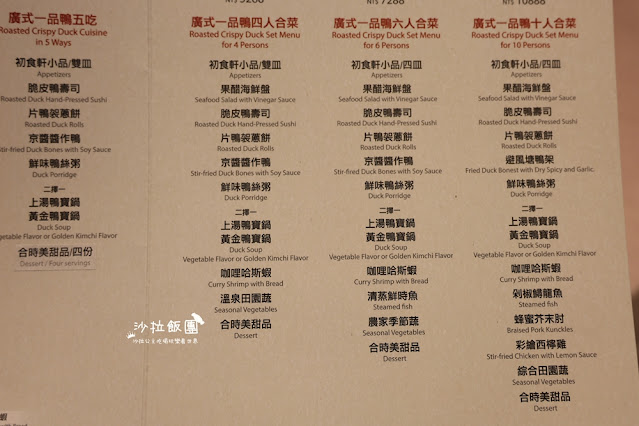 廣式一品鴨五吃
Roasted Crispy Duck Cuisine
in 5 Ways
初食軒小品/雙皿
Appetizers
脆皮鴨壽司
Roasted Duck Hand-Pressed Sushi
片鴨製蔥餅
Roasted Duck Rolls
京醬醬作鴨
Stir-fried Duck Bones with Soy Sauce
鮮味鴨絲粥
Duck Porridge
二擇一
上湯鴨寶鍋
黃金鴨寶鍋
Duck Soup
Vegetable Flavor or Golden Kimchi Flavor
合時美甜品/四份
Dessert / Four servings
廣式一品鴨四人合菜
Roasted Crispy Duck Set Menu
for 4 Persons
初食軒小品/雙皿
Appetizers
果醋海鮮盤
Seafood Salad with Vinegar Sauce
脆皮鴨壽司
Roasted Duck Hand-Pressed Sushi
片鴨製蔥餅
Roasted Duck Rolls
京醬醬作鴨
Stir-fried Duck Bones with Soy Sauce
鮮味鴨絲粥
Duck Porridge
二擇一
上湯鴨寶鍋
黃金鴨寶鍋
Duck Soup
Vegetable Flavor or Golden Kimchi Flavor
咖哩哈斯蝦
Curry Shrimp with Bread
溫泉田園蔬
Seasonal Vegetables
合時美甜品
Dessert
NT$ 7288
廣式一品鴨六人合菜
Roasted Crispy Duck Set Menu
for 6 Persons
初食軒小品/四皿
Appetizers
果醋海鮮盤
Seafood Salad with Vinegar Sauce
脆皮鴨壽司
Roasted Duck Hand-Pressed Sushi
片鴨製蔥餅
Roasted Duck Rolls
京醬醬作鴨
Stir-fired Duck Bones with Soy Sauce
鮮味鴨絲粥
Duck Porridge
二擇一
上湯鴨寶鍋
黃金鴨寶鍋
Duck Soup
Vegetable Flavor or Golden Kimchi Flavor
咖哩哈斯蝦
Curry Shrimp with Bread
清蒸鮮時魚
Steamed fish
農家季節蔬
Seasonal Vegetables
合時美甜品
Dessert
NT$ 10888
廣式一品鴨十人合菜
Roasted Crispy Duck Set Menu
for 10 Persons
初食軒小品/四皿
Appetizers
果醋海鮮盤
Seafood Salad with Vinegar Sauce
脆皮鴨壽司
Roasted Duck Hand-Pressed Sushi
片鴨製蔥餅
Roasted Duck Rolls
避風塘鴨架
Fried Duck Bonest with Dry Spicy and Garlic
鮮味鴨絲粥
Duck Porridge
二擇一
上湯鴨寶鍋
黃金鴨寶鍋
Duck Soup
Vegetable Flavor or Golden Kimchi Flavor
咖哩哈斯蝦
Curry Shrimp with Bread
剁椒鱘龍魚
Steamed fish
蜂蜜芥末肘
Braised Pork Kunckles
彩搶西檸雞
Stir-fried Chicken with Lemon Sauce
綜合田園蔬
Seasonal Vegetables
合時美甜品
Dessert
沙拉飯團